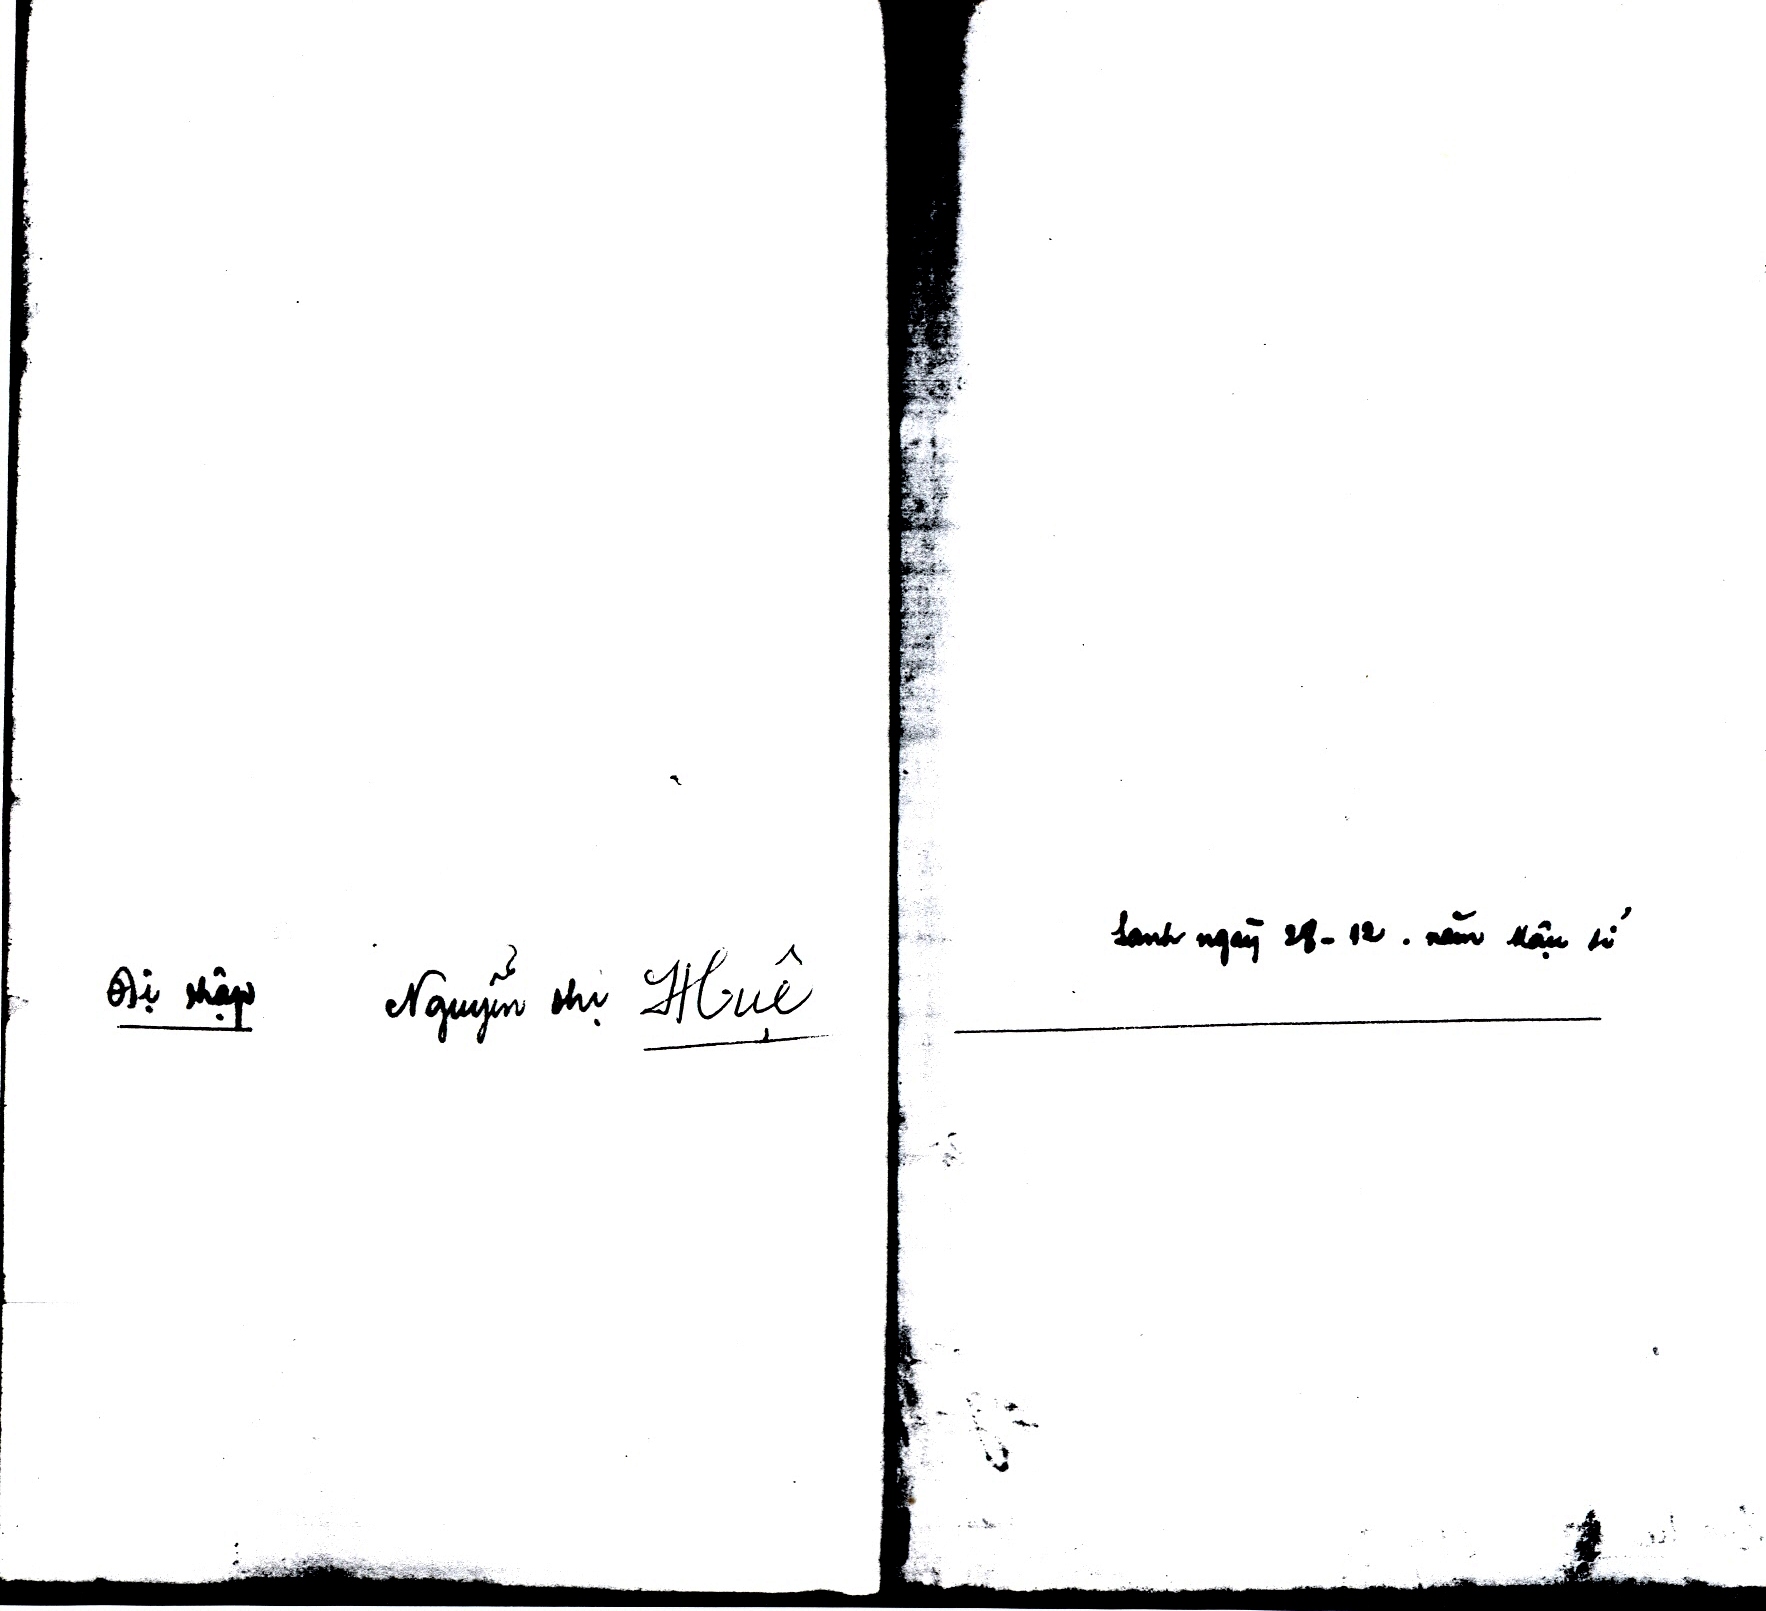 Đệ thập Nguyễn thị Huệ
Sanh ngày 28-12. năm Mậu tí